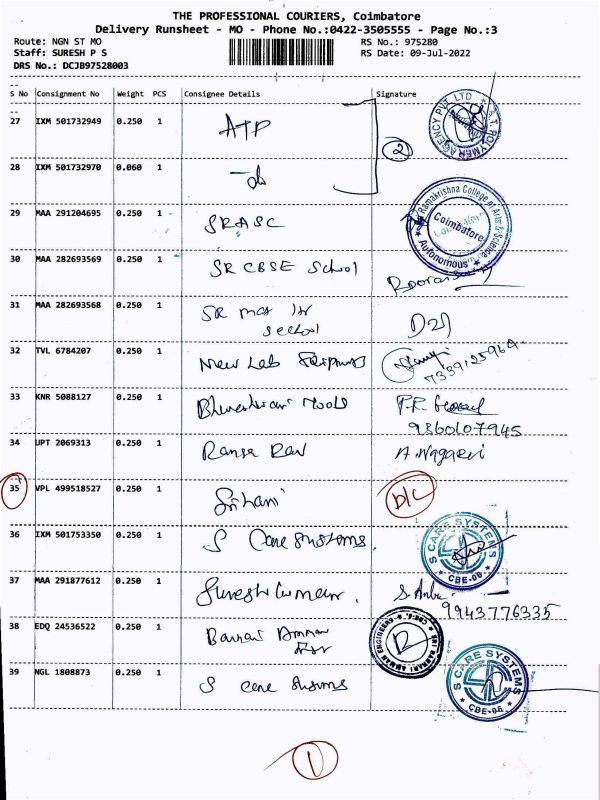 THE PROFESSIONAL COURIERS, Coimbatore
Delivery Runsheet - MO - Phone No.:0422-3505555 - Page No.:3
Route: NGN ST MO RS No.: 975280
Staff: SURESH P S RS Date: 09-Jul-2022
DRS No.: DCJB97528003
S No Consignment No Weight PCS Consignee Details Signature
27 IXM 501732949 0.250 1 ATP
2
28 IXM 501732970 0.060 1 do
29 MAA 291204695 0.250 1 SRASC
Ramakrishna College of Arts & Science
Coimbatore
Autonomous
30 MAA 282693569 0.250 1 SR CBSE School
31 MAA 282693568 0.250 1 SR mat Hr
school
32 TVL 6784207 0.250 1 New Lab
33 KNR 5088127 0.250 1
9360107945
34 UPT 2069313 0.250 1 A. Nagarvi
35 VPL 499518527 0.250 1 Srihari D/C
36 IXM 501753350 0.250 1 S Care Systems
S CARE SYSTEMS
CBE-06
37 MAA 291877612 0.250 1 Sureshkumar. S. Anbu
9943776335
38 EDQ 24536522 0.250 1 Bannari Amman
39 NGL 1808873 0.250 1 S care systems
S CARE SYSTEMS
CBE-06
1